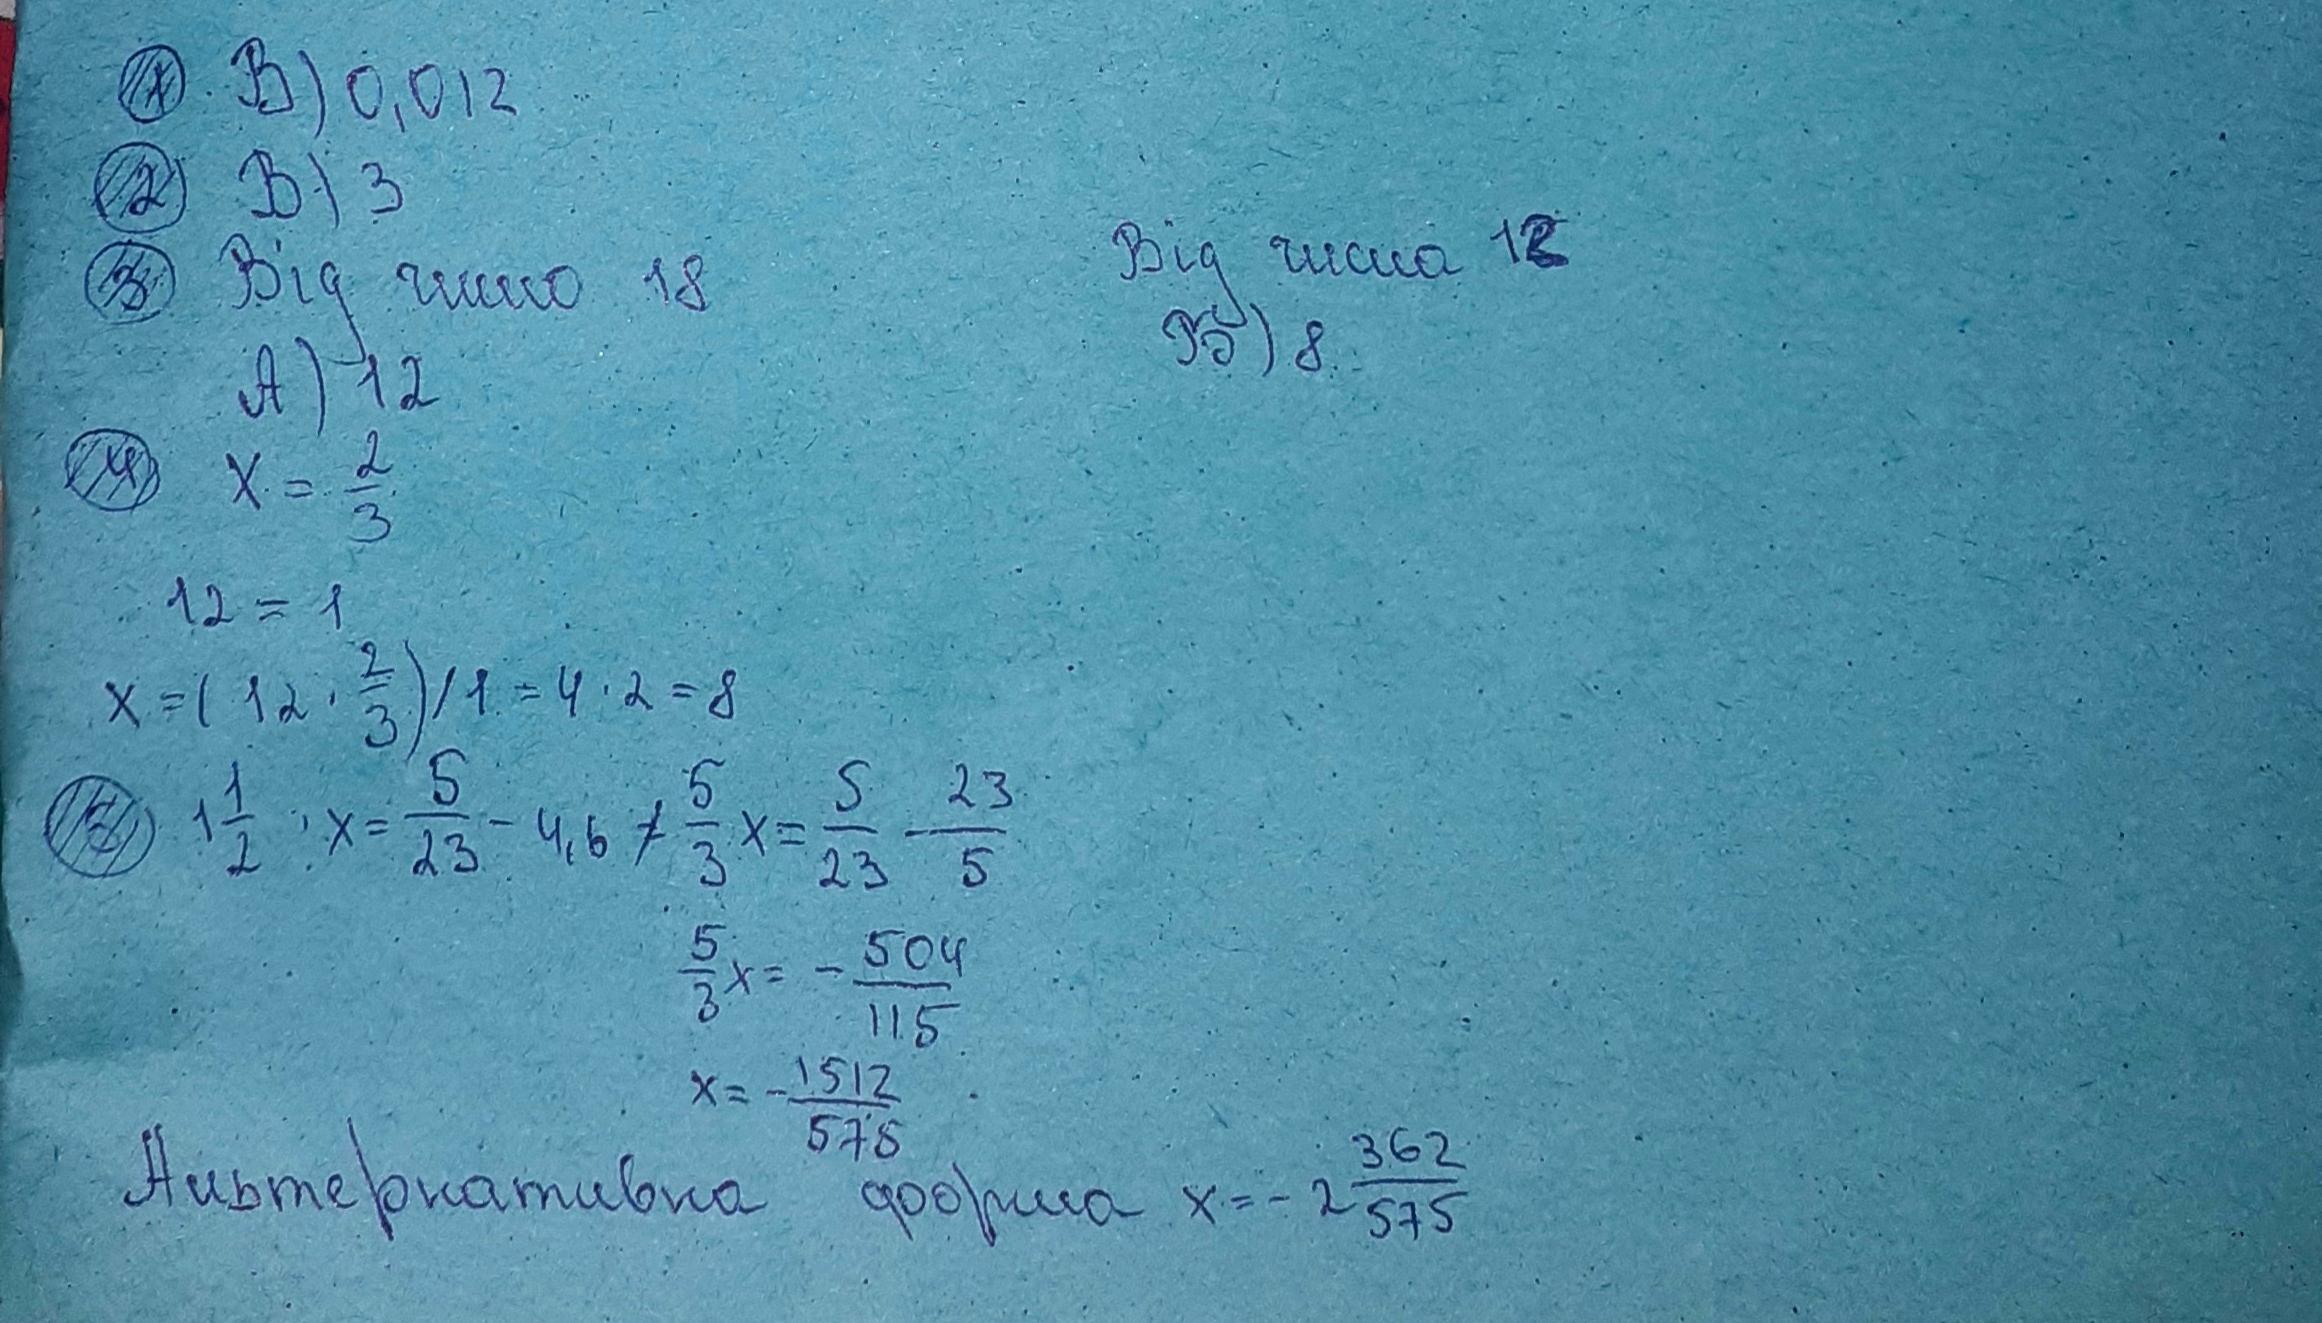 1 В) 0,012
2 В) 3
3 Від число 18
А) 12
Від числа 12
Б) 8
4 x = 2/3
12 = 1
x = (12 · 2/3) / 1 = 4 · 2 = 8
1 1/2 : x = 5/23 - 4,6 ≠ 5/3 x = 5/23 - 23/5
5/3 x = - 504/115
x = - 1512/575
Альтернативна форма x = - 2 362/575